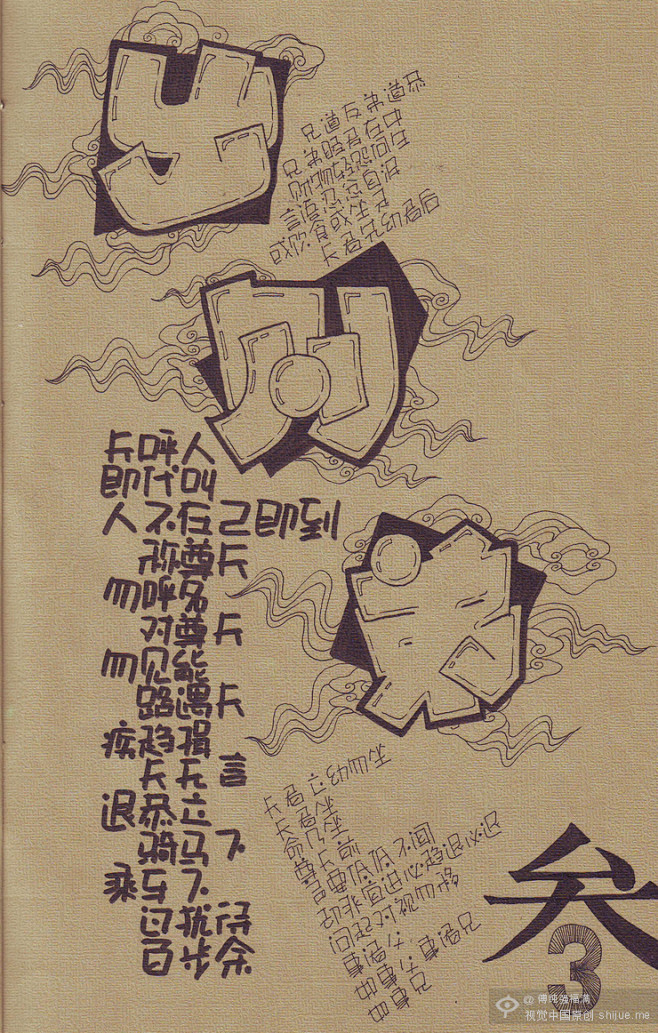 出
则
兄道友弟道恭
兄弟睦孝在中
财物轻怨何生
言语忍忿自泯
或饮食或坐走
长者先幼者后
长呼人
即代叫
人不在己即到
称尊长
勿呼名
对尊长
勿见能
路遇长
疾趋揖
长无言
退恭立
骑马下
乘车下
过犹待
百步余
长者立幼勿坐
长者坐
命乃坐
尊长前
声要低低不闻
却非宜进必趋退必迟
问起对视勿移
叁
3
视觉中国原创 shijue.me